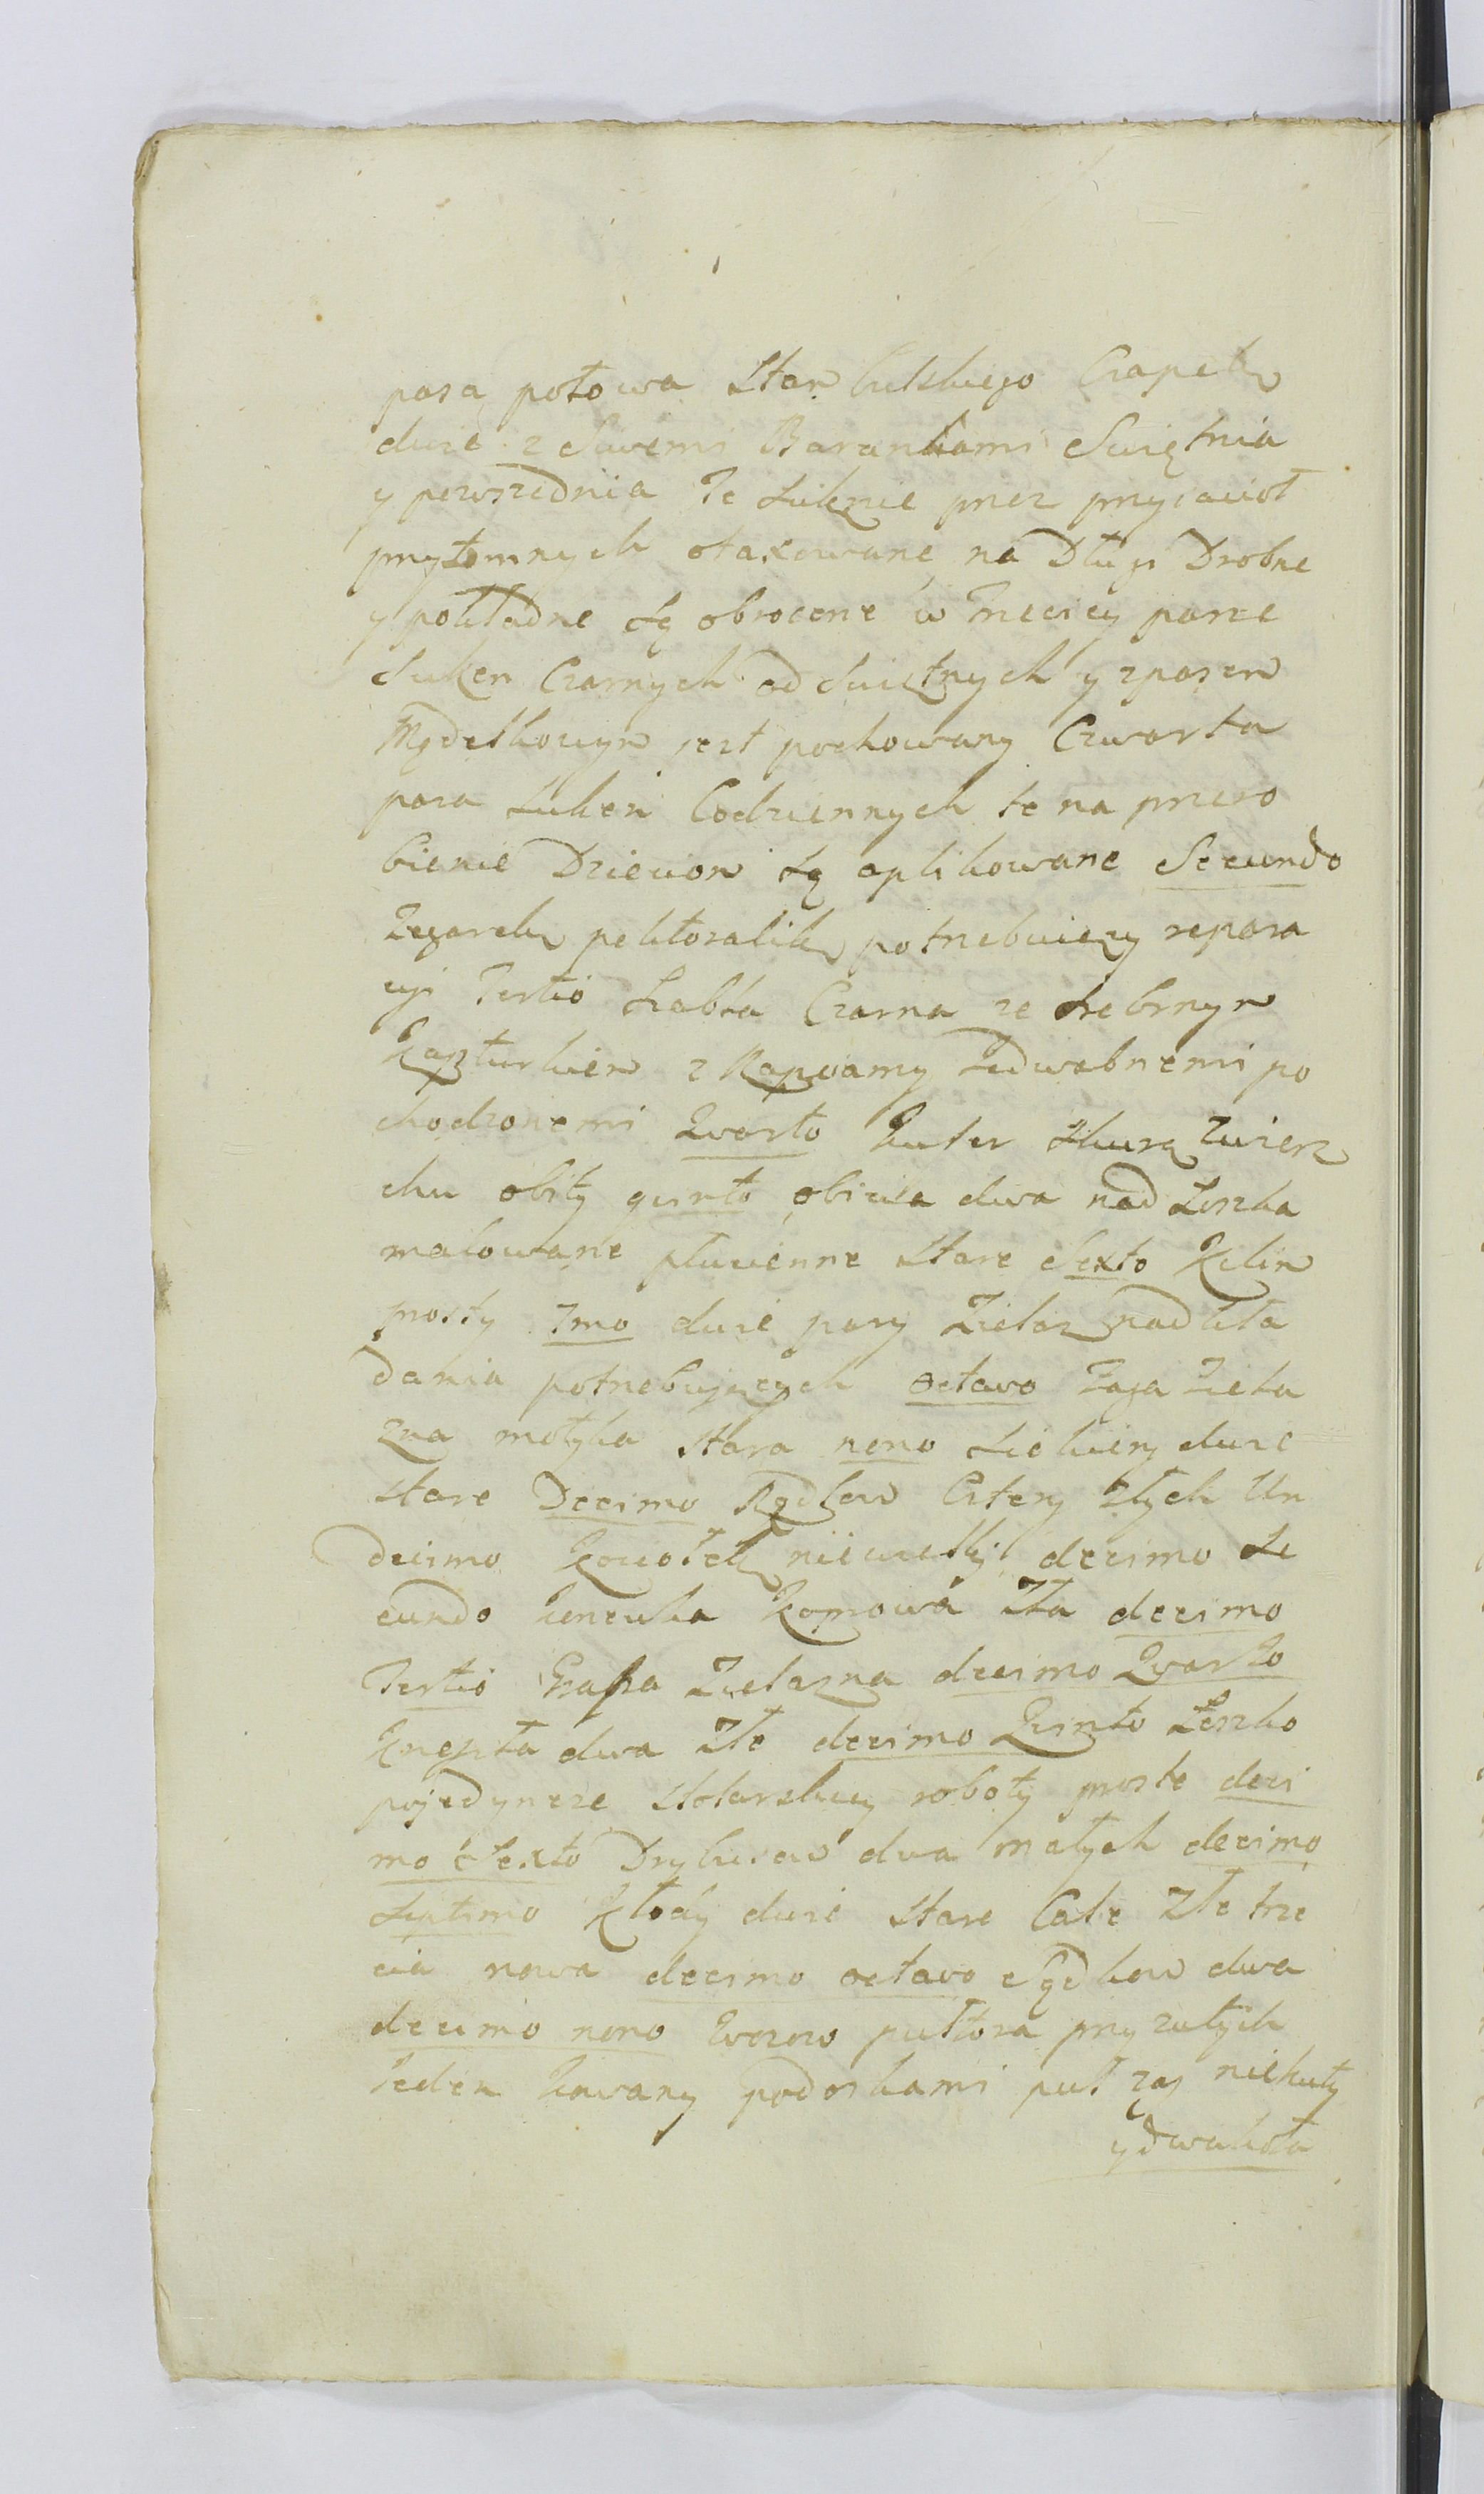 pasa połowa Stambulskiego Czapek
dwie z Siwemi Barankami Swiętnia
y powszednia Te Suknie przez przyiacioł
przytomnych otaxowane na Długi Drobne
y pokładne są obrocone w Trzeciey parze
Suken Czarnych od Swiętnych y zpasem
Mędelkowym jest pochowany Czwarta
para Sukeń Codziennych te na przero
bienie Dzieciom są aplikowane Secundo
Zegarek pektoralik potrzebuiący repara
cyi Tertio Szabla Czarna ze srebrnym
Kapturkiem z Rapciamy Jedwabnemi po
chodzonemi Qvarto Kufer Skurą zwierz
chu obity qvinto obicia dwa nad Łoszka
malowane płucienne stare Sexto Kilim
prosty 7mo dwie pary Żelaz nadkła
dania potrzebujących octavo Zaga Żela
zna motyka stara nono Siekiery dwie
stare Decimo Rądlow Cztery złych Un
decimo Kociołek niewielki decimo Se
cundo Honewka Kopiowa zła decimo
Tertio Grapa Żelazna decimo Qvarto
Krzesła dwa złe decimo Qvinto Łoszko
pojedyncze stolarskiey roboty proste deci
mo Sexto Drybusow dwa małych decimo
Septimo Kłody dwie stare Całe złe trze
cia nowa decimo octavo Sądkow dwa
decimo nono Wozow pułtora przyzułych
Jeden kowany podoskami puł zaś niekuty
y dwukoła